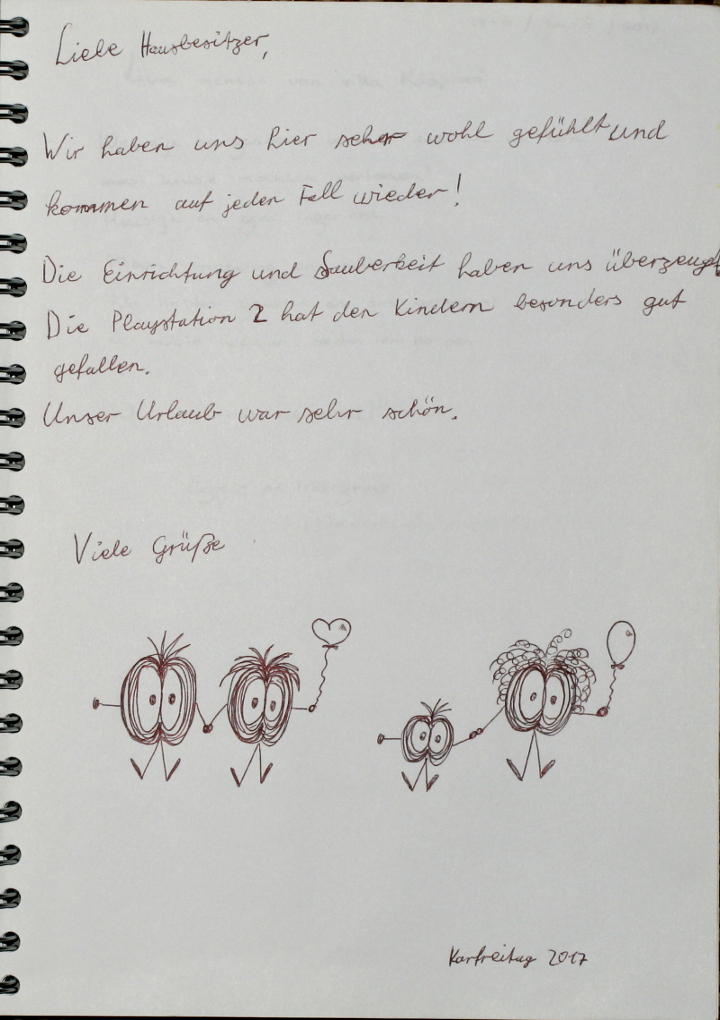 Liebe Hausbesitzer,
Wir haben uns hier sehr wohl gefühlt und
kommen auf jeden Fall wieder!
Die Einrichtung und Sauberkeit haben uns überzeugt
Die Playstation 2 hat den Kindern besonders gut
gefallen.
Unser Urlaub war sehr schön.
Viele Grüße
Karfreitag 2017